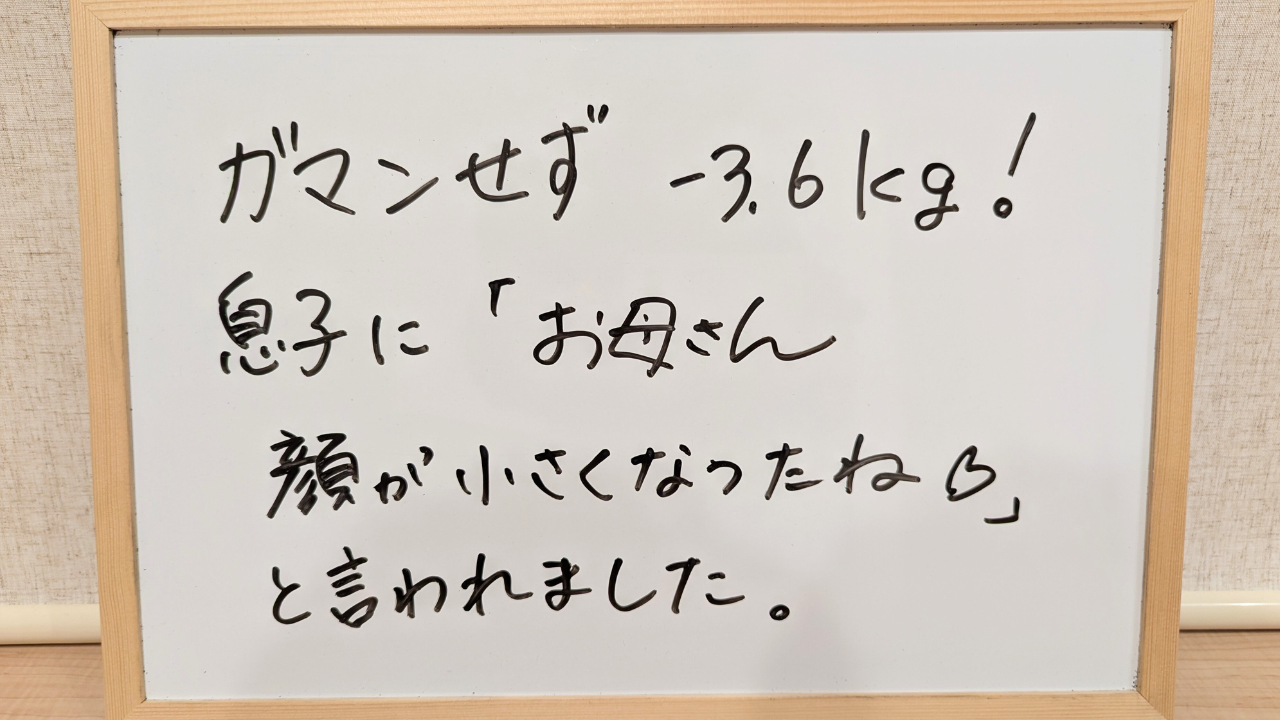 ガマンせず -3.6kg!
息子に「お母さん
顔が小さくなったね♡」
と言われました。